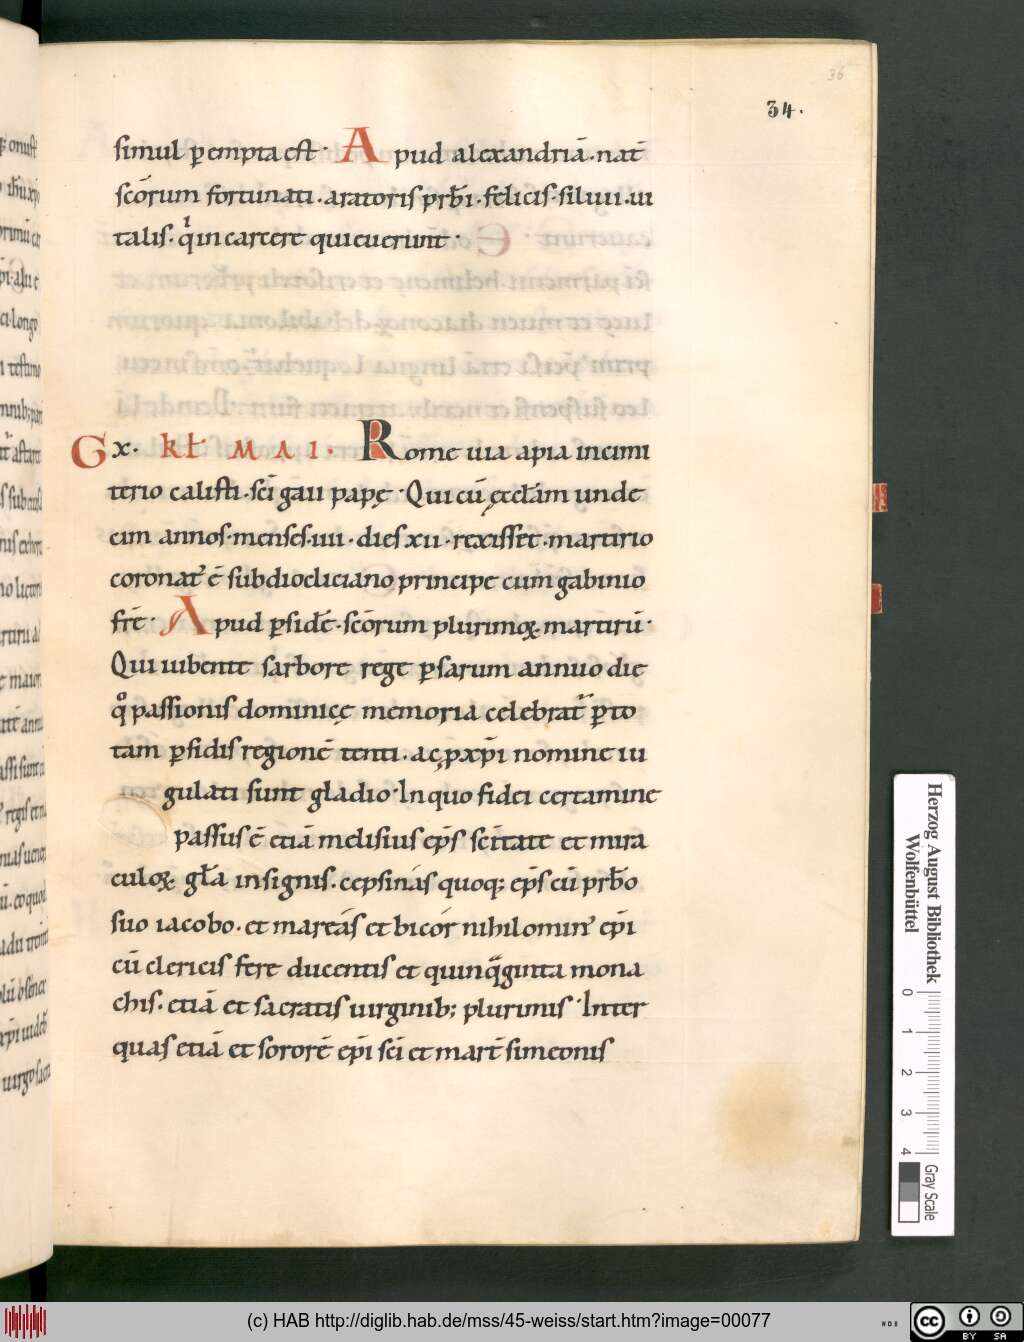 36
34.
simul p̱empta est · Apud alexandriā · nat̄
scōrum fortunati · aratoris prb̄i · felicis · siluii · ui
talis · qͥ in carcere quieuerunt ·
G x · kł MAI · Rome uia apia in cimi
terio calisti · sc̄i gaii papę · Qui cū ęccl̄am unde
cim annos · menses · iiii · dies xii · rexisset · martirio
coronat᷒ ē sub diocliciano principe cum gabinio
fr̄e · Apud p̱side · scōrum plurimoꝝ martirū ·
Qui iubente sarbore rege p̱sarum annuo die
qͦ passionis dominicę memoria celebrat᷑ p̱ to
tam p̱sidis regionē tenti · ac p xp̄i nomine iu
gulati sunt gladio · In quo fidei certamine
passus ē etiā melisius ep̄s sc̄itate et mira
culoꝝ gła insignis · cepsinás quoq; ep̄s cū prb̄o
suo iacobo · et mareás et bicór nihilomin᷒ ep̄i
cū clericis fere ducentis et quinqͣginta mona
chis · etiā et sacratis uirginib; plurimis · Inter
quas etiā et sororē ep̄i sc̄i et mart̄ simeonis
Herzog August Bibliothek
Wolfenbüttel
0 1 2 3 4
Gray Scale
(c) HAB http://diglib.hab.de/mss/45-weiss/start.htm?image=00077
WDB
cc BY SA